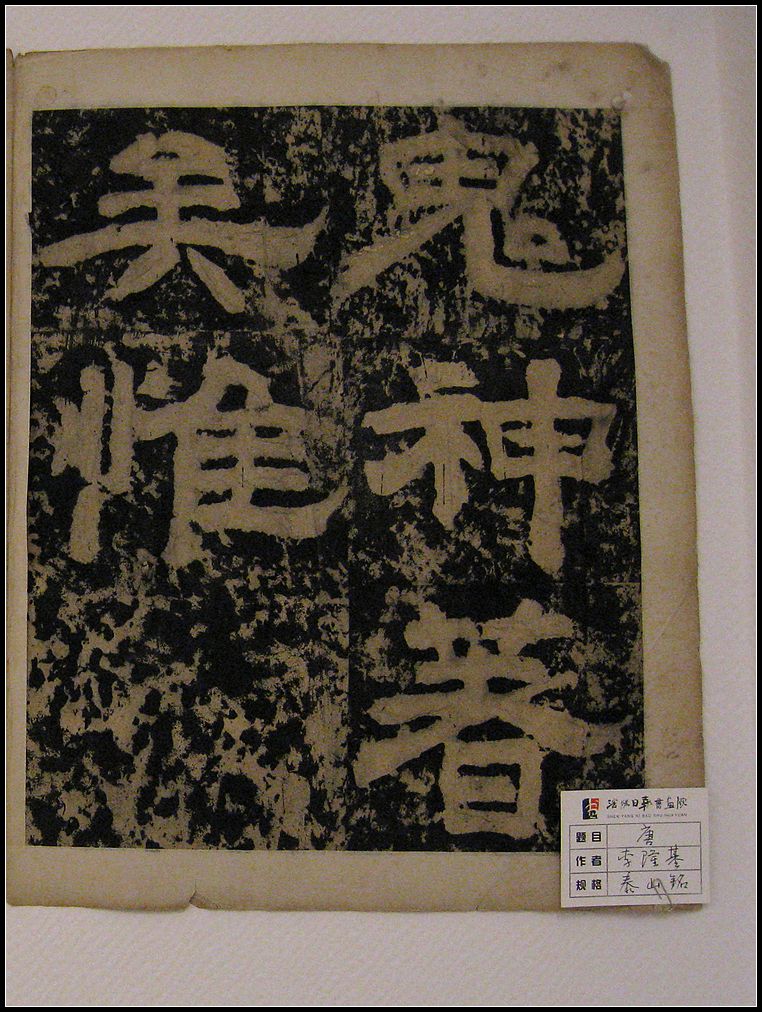 鬼神著
矣惟
沈阳日報書画院
SHEN YANG RI BAO SHU HUA YUAN
题目 唐
作者 李隆基
规格 泰山铭